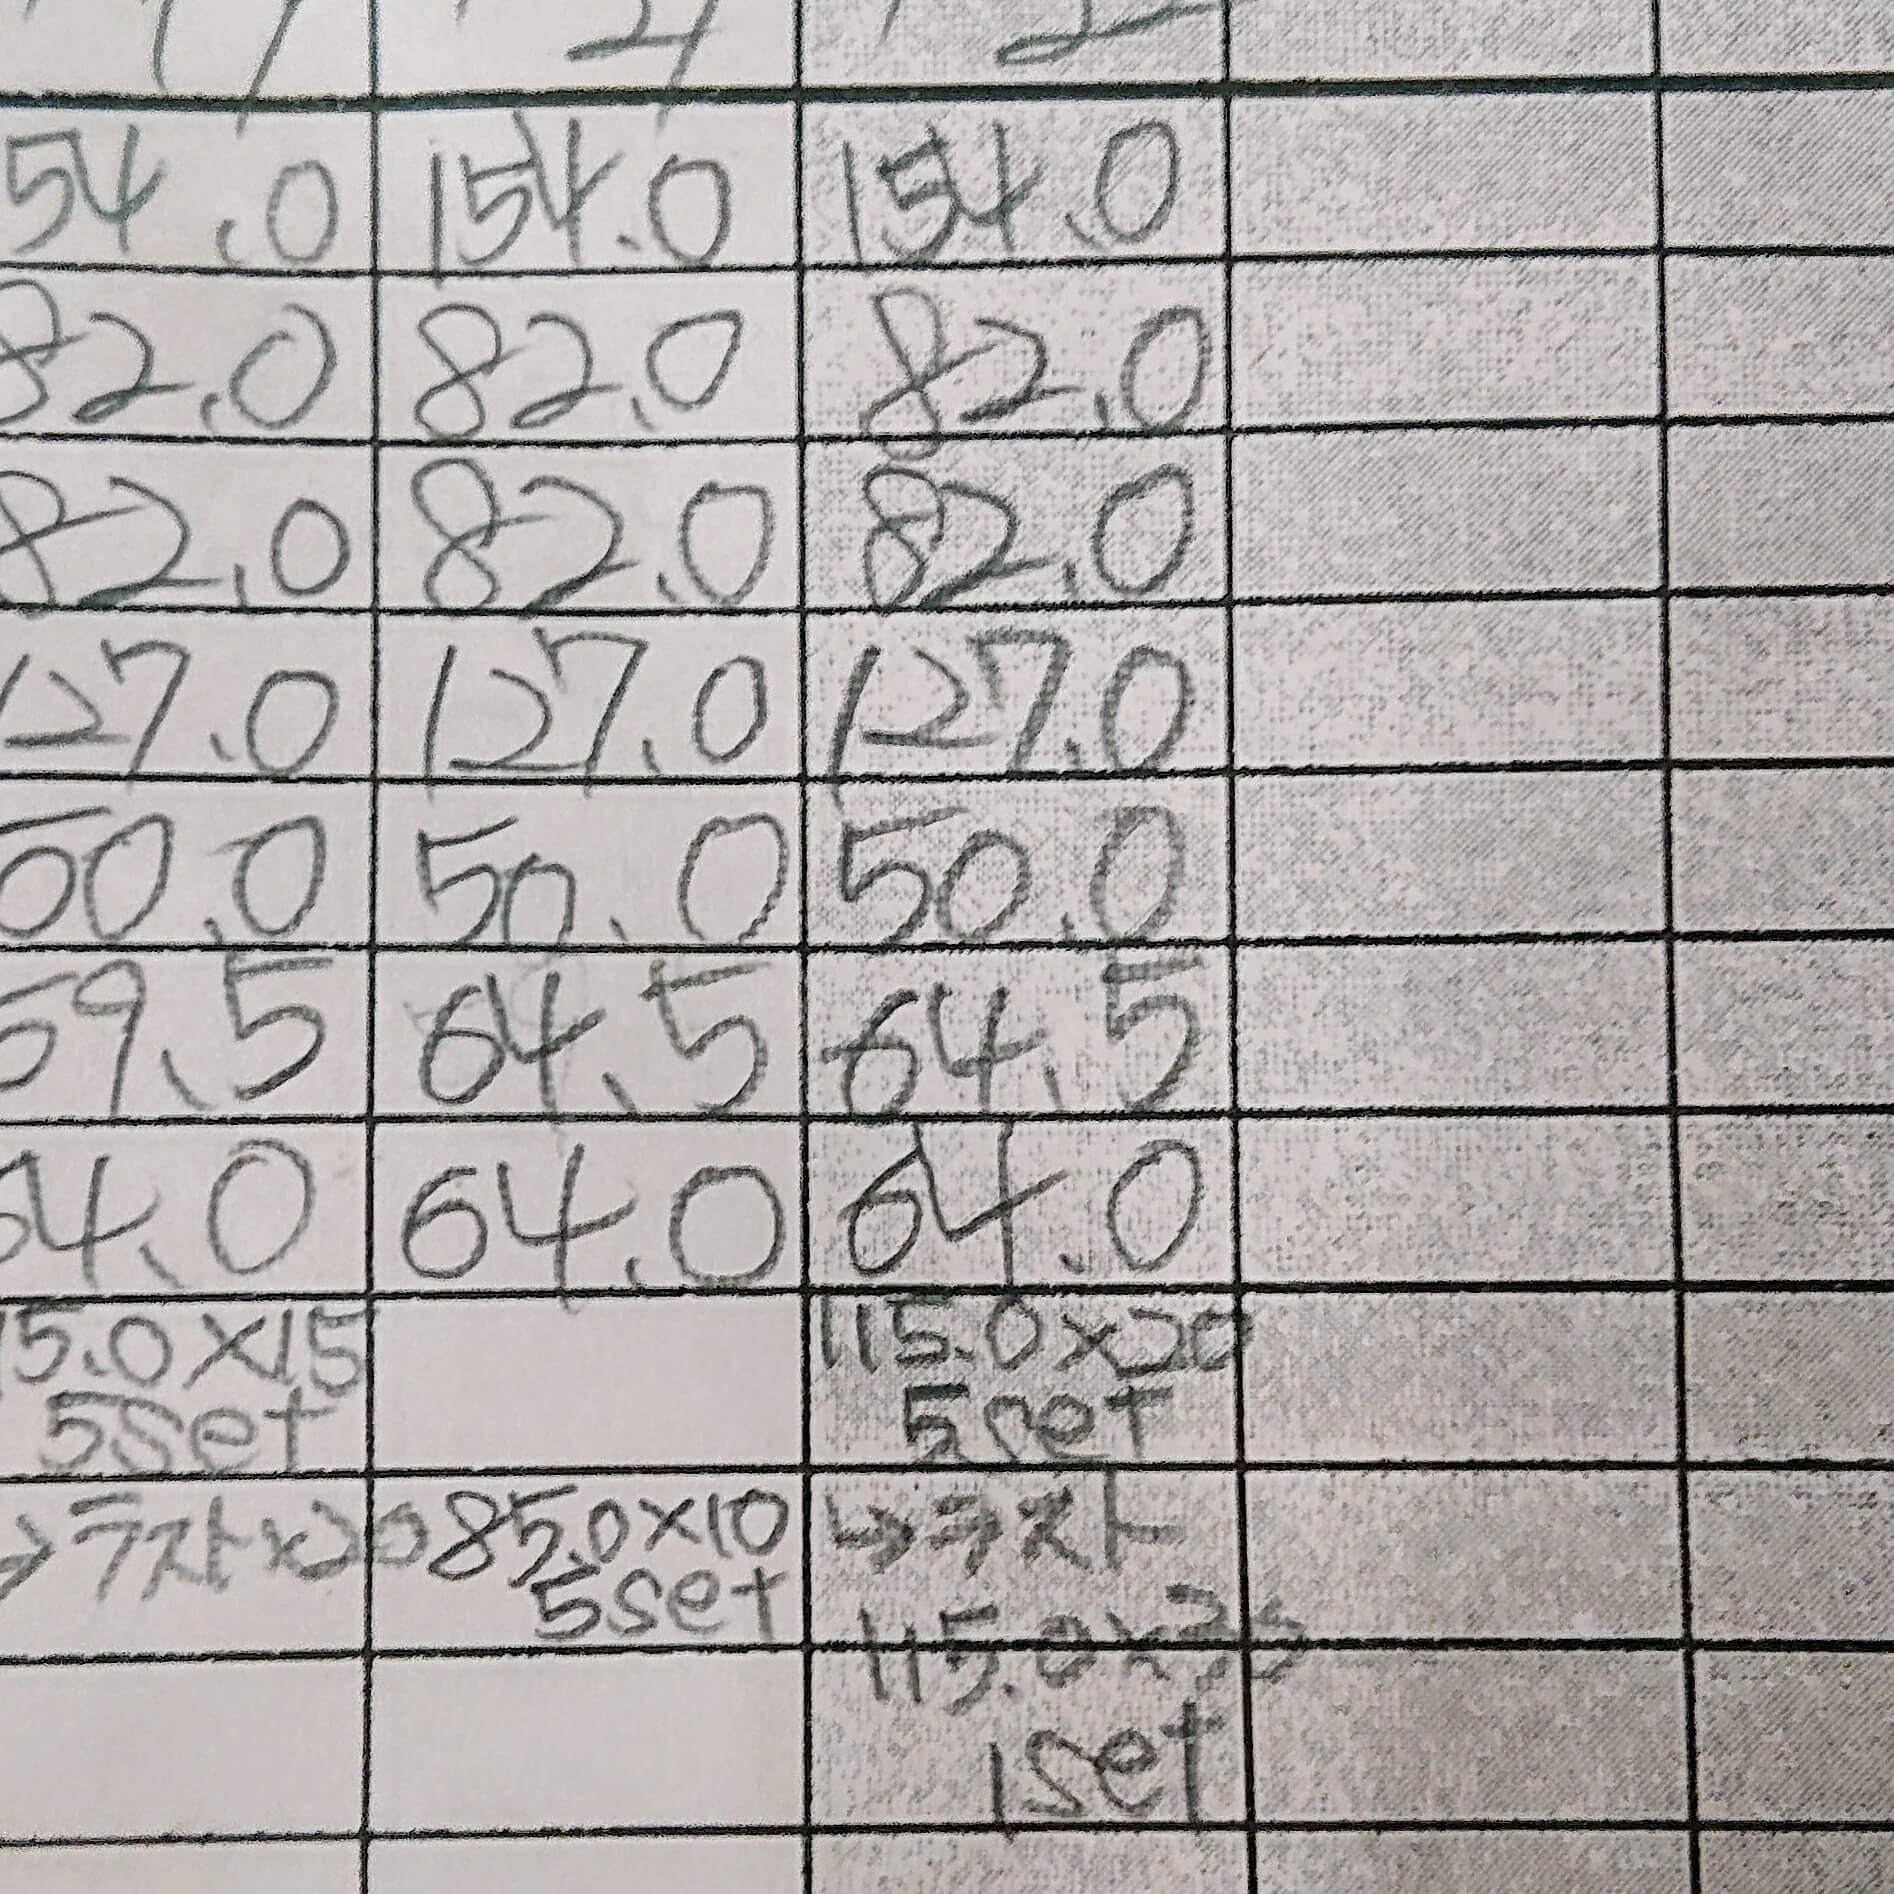 54.0 154.0 154.0
82.0 82.0 82.0
82.0 82.0 82.0
127.0 127.0 127.0
50.0 50.0 50.0
59.5 64.5 64.5
64.0 64.0 64.0
15.0×15 115.0×20
5set 5set
→ラスト×20 85.0×10 →ラスト
5set
115.0×
1set